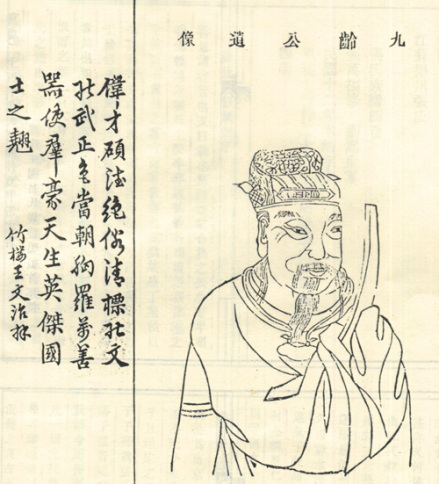 九齡公遺像
偉才碩德絕俗清標孔文
孔武正色當朝胸羅萬善
器使羣豪天生英傑國
士之翹
竹樓王文治拜